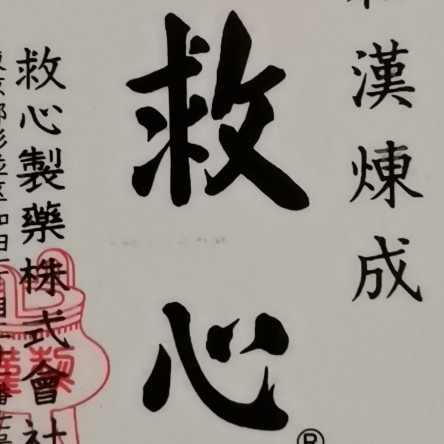 漢煉成
救心
®
救心製薬株式會社